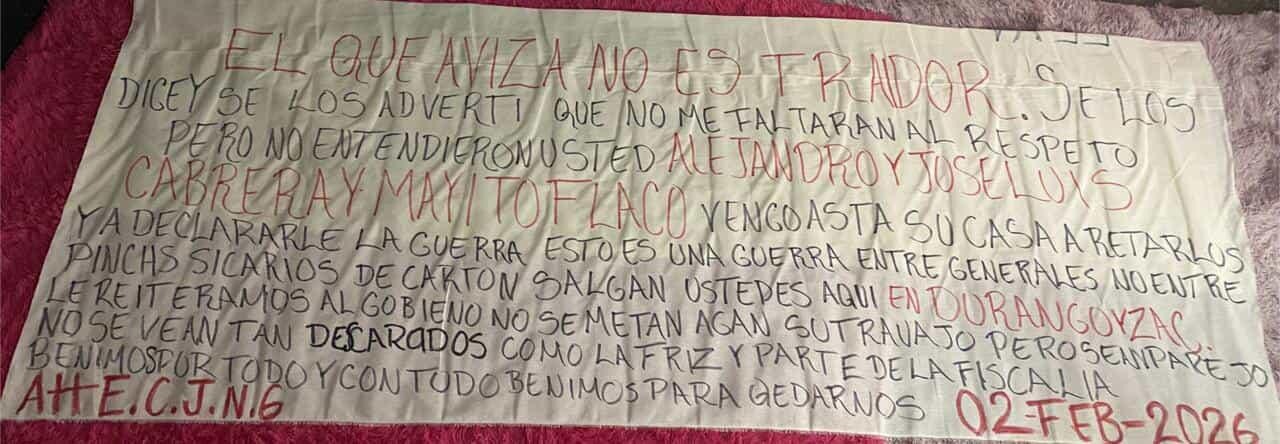 EL QUE AVIZA NO ES TRAIDOR. SE LOS
DIGEY SE LOS ADVERTI QUE NO ME FALTARAN AL RESPETO
PERO NO ENTENDIERON USTED ALEJANDRO Y JOSE LUIS
CABRERA Y MAYITO FLACO VENGO ASTA SU CASA A RETARLOS
Y A DECLARARLE LA GUERRA ESTO ES UNA GUERRA ENTRE GENERALES NO ENTRE
PINCHS SICARIOS DE CARTON SALGAN USTEDES AQUI EN DURANGO Y ZAC.
LE REITERAMOS AL GOBIENO NO SE METAN AGAN SU TRAVAJO PERO SEAN PAREJO
NO SE VEAN TAN DESCARADOS COMO LA FRIZ Y PARTE DE LA FISCALIA
BENIMOS POR TODO Y CON TUDO BENIMOS PARA GEDARNOS
ATT E.C.J.N.G 02-FEB-2026